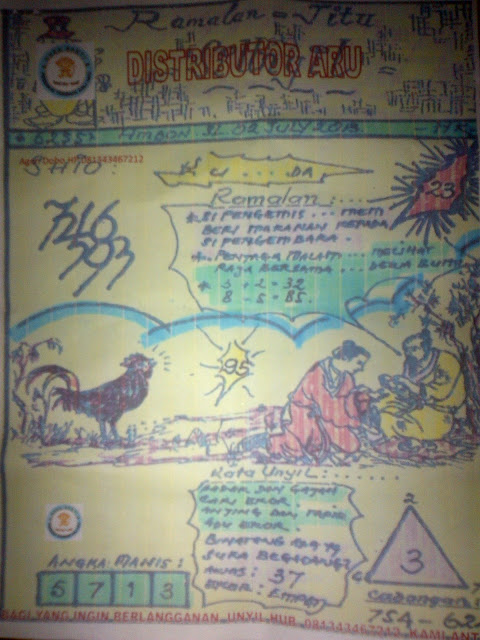 Ramalan = Jitu
DISTRIBUTOR ARU
AMBON SL 02 JULY 2013
Agen Dobo Hp 081343467212
SHIO :
CI .... DA
Ramalan : ....
23
7216
793
SI PENGEMIS ... MEM
BERI MAKANAN KEPADA
SI PENGEMBARA.
PENJAGA MALAM ... MELIHAT
RAJA BERSAMA ... DEWA BUMI
3 - 2 = 32
8 - 5 = 85.
95
Kata Unyil : ......
BADAK DAN GAJAH
CARI EKOR.
ADU EKOR.
BINATANG APA YG
SUKA BEGADANG?
AWAS : 37
EKOR : EMPAT
2
3
6
7
ANGKA MANIS :
5 7 1 3
Cadangan :
754 - 62
BAGI YANG INGIN BERLANGGANAN UNYIL HUB. 081343467212 KAMI ANT